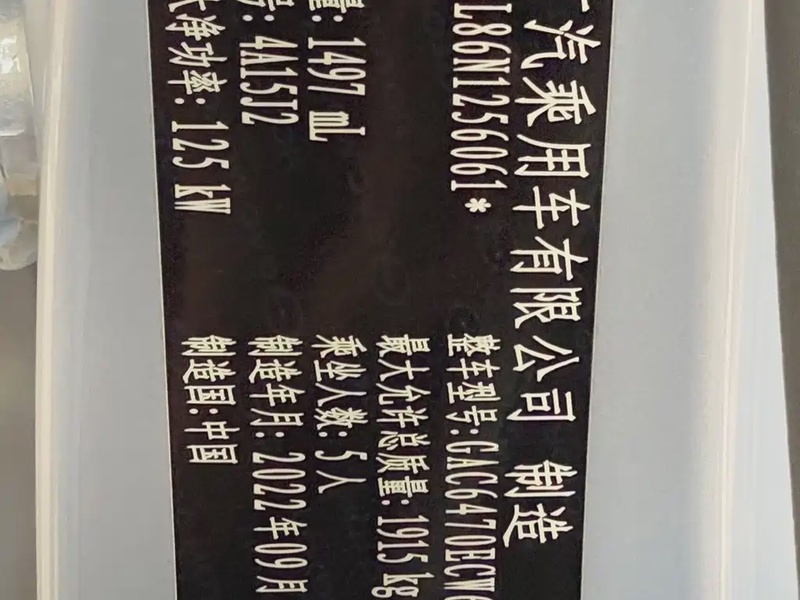 汽乘用车有限公司 制造
L86N1256061*
整车型号:GAC6470ECW6
量: 1497 mL
最大允许总质量: 1915 kg
号: 4A15J2
乘坐人数: 5人
大净功率: 125 kW
制造年月: 2022年09月
制造国: 中国